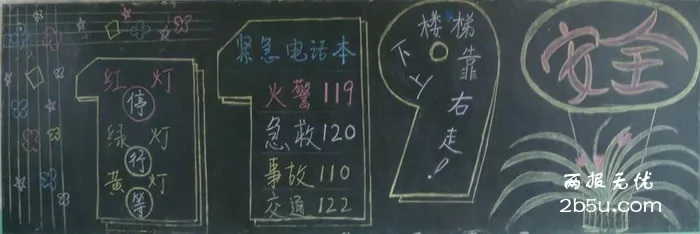 红 灯
停
绿 灯
行
黄 灯
等
紧急电话本
火警119
急救120
事故110
交通122
上下楼梯靠右走!
安全
两报无忧
2b5u.com